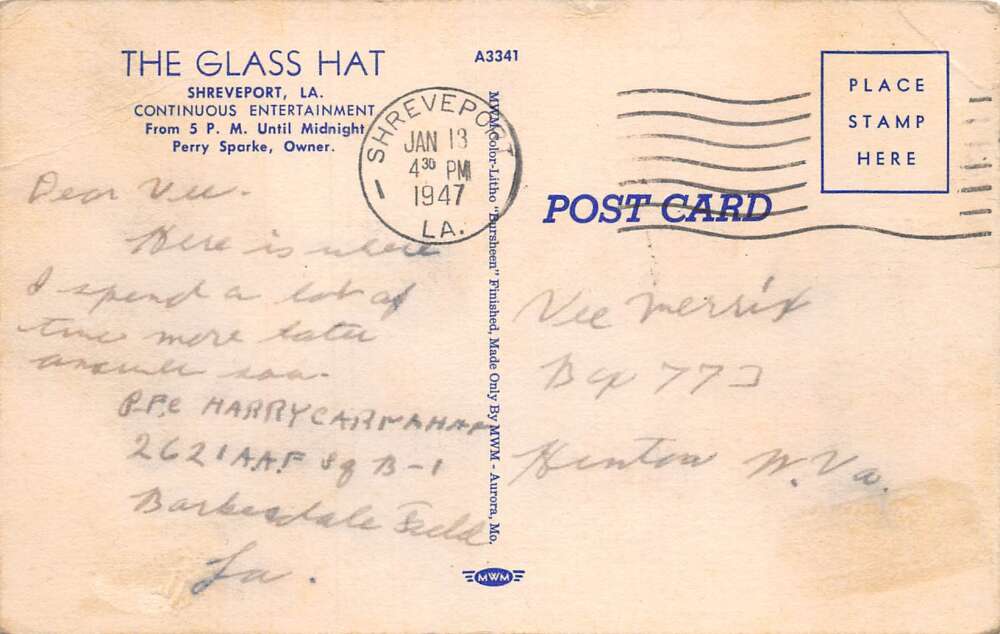 THE GLASS HAT
SHREVEPORT, LA.
CONTINUOUS ENTERTAINMENT
From 5 P. M. Until Midnight
Perry Sparke, Owner.
Dear Vee.
Here is where
I spend a lot of
time more later
answer soon.
P.F.C HARRY CARNAHAN
2621 A.A.F Sq B-1
Barksdale Field
La.
A3341
SHREVEPORT
JAN 13
4 30 PM
1947
LA.
MWM Color-Litho "Bursheen" Finished, Made Only By MWM - Aurora, Mo.
MWM
PLACE
STAMP
HERE
POST CARD
Vee Merrix
Box 773
Hinton W. Va.